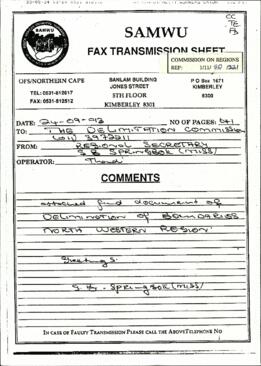 CC
TE
FB
SAMWU
SAMWU
FAX TRANSMISSION SHEET
COMMISSION ON REGIONS
REF: 1/1/1/
OFS/NORTHERN CAPE
BANLAM BUILDING
P O Box 1671
JONES STREET
KIMBERLEY
TEL: 0531-812617
5TH FLOOR
8300
FAX: 0531-812512
KIMBERLEY 8301
DATE: 24-09-93 NO OF PAGES: 6+1
TO: THE DELIMITATION COMMISSION
(011) 3972211
FROM: REGIONAL SECRETARY
S. B. SPRINGBOK (MISS)
OPERATOR:
COMMENTS
attached find document of
DELIMINATION OF BOUNDARIES
NORTH WESTERN REGION
Greetings.
S. B. SPRINGBOK (MISS)
IN CASE OF FAULTY TRANSMISSION PLEASE CALL THE ABOVE TELEPHONE NO